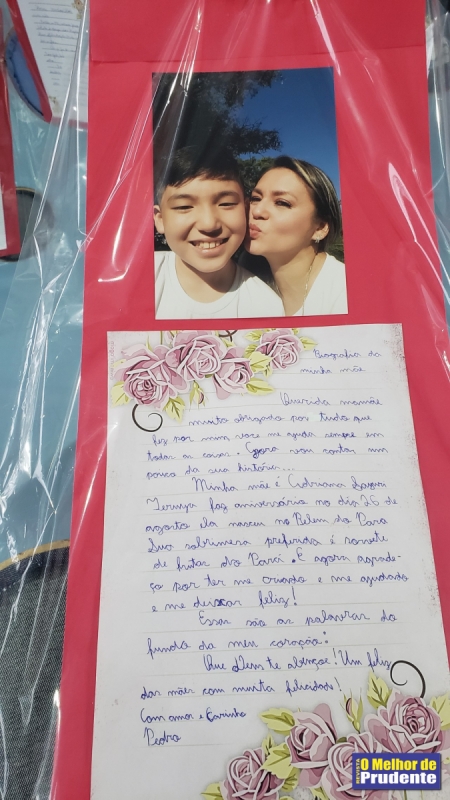 Biografia da
minha mãe
Querida mamãe
muito obrigado por tudo que
fez por mim, voce me ajuda sempre em
todas as coisas. Agora vou contar um
pouco da sua história...
Minha mãe é Adriana
Teruya faz aniversário no dia 26 de
agosto ela nasceu no Belem do Para
Sua sobrimera preferida é sorvete
de frutas do Pará. E agora agrade-
ço por ter me criado e me ajudado
e me deixar feliz!
Essas são as palavras do
fundo do meu coração:
Que Deus te abençoe! Um feliz
dias mães com muita felicidade!
Com amor e Carinho
Pedro
REVISTA
O Melhor de
Prudente